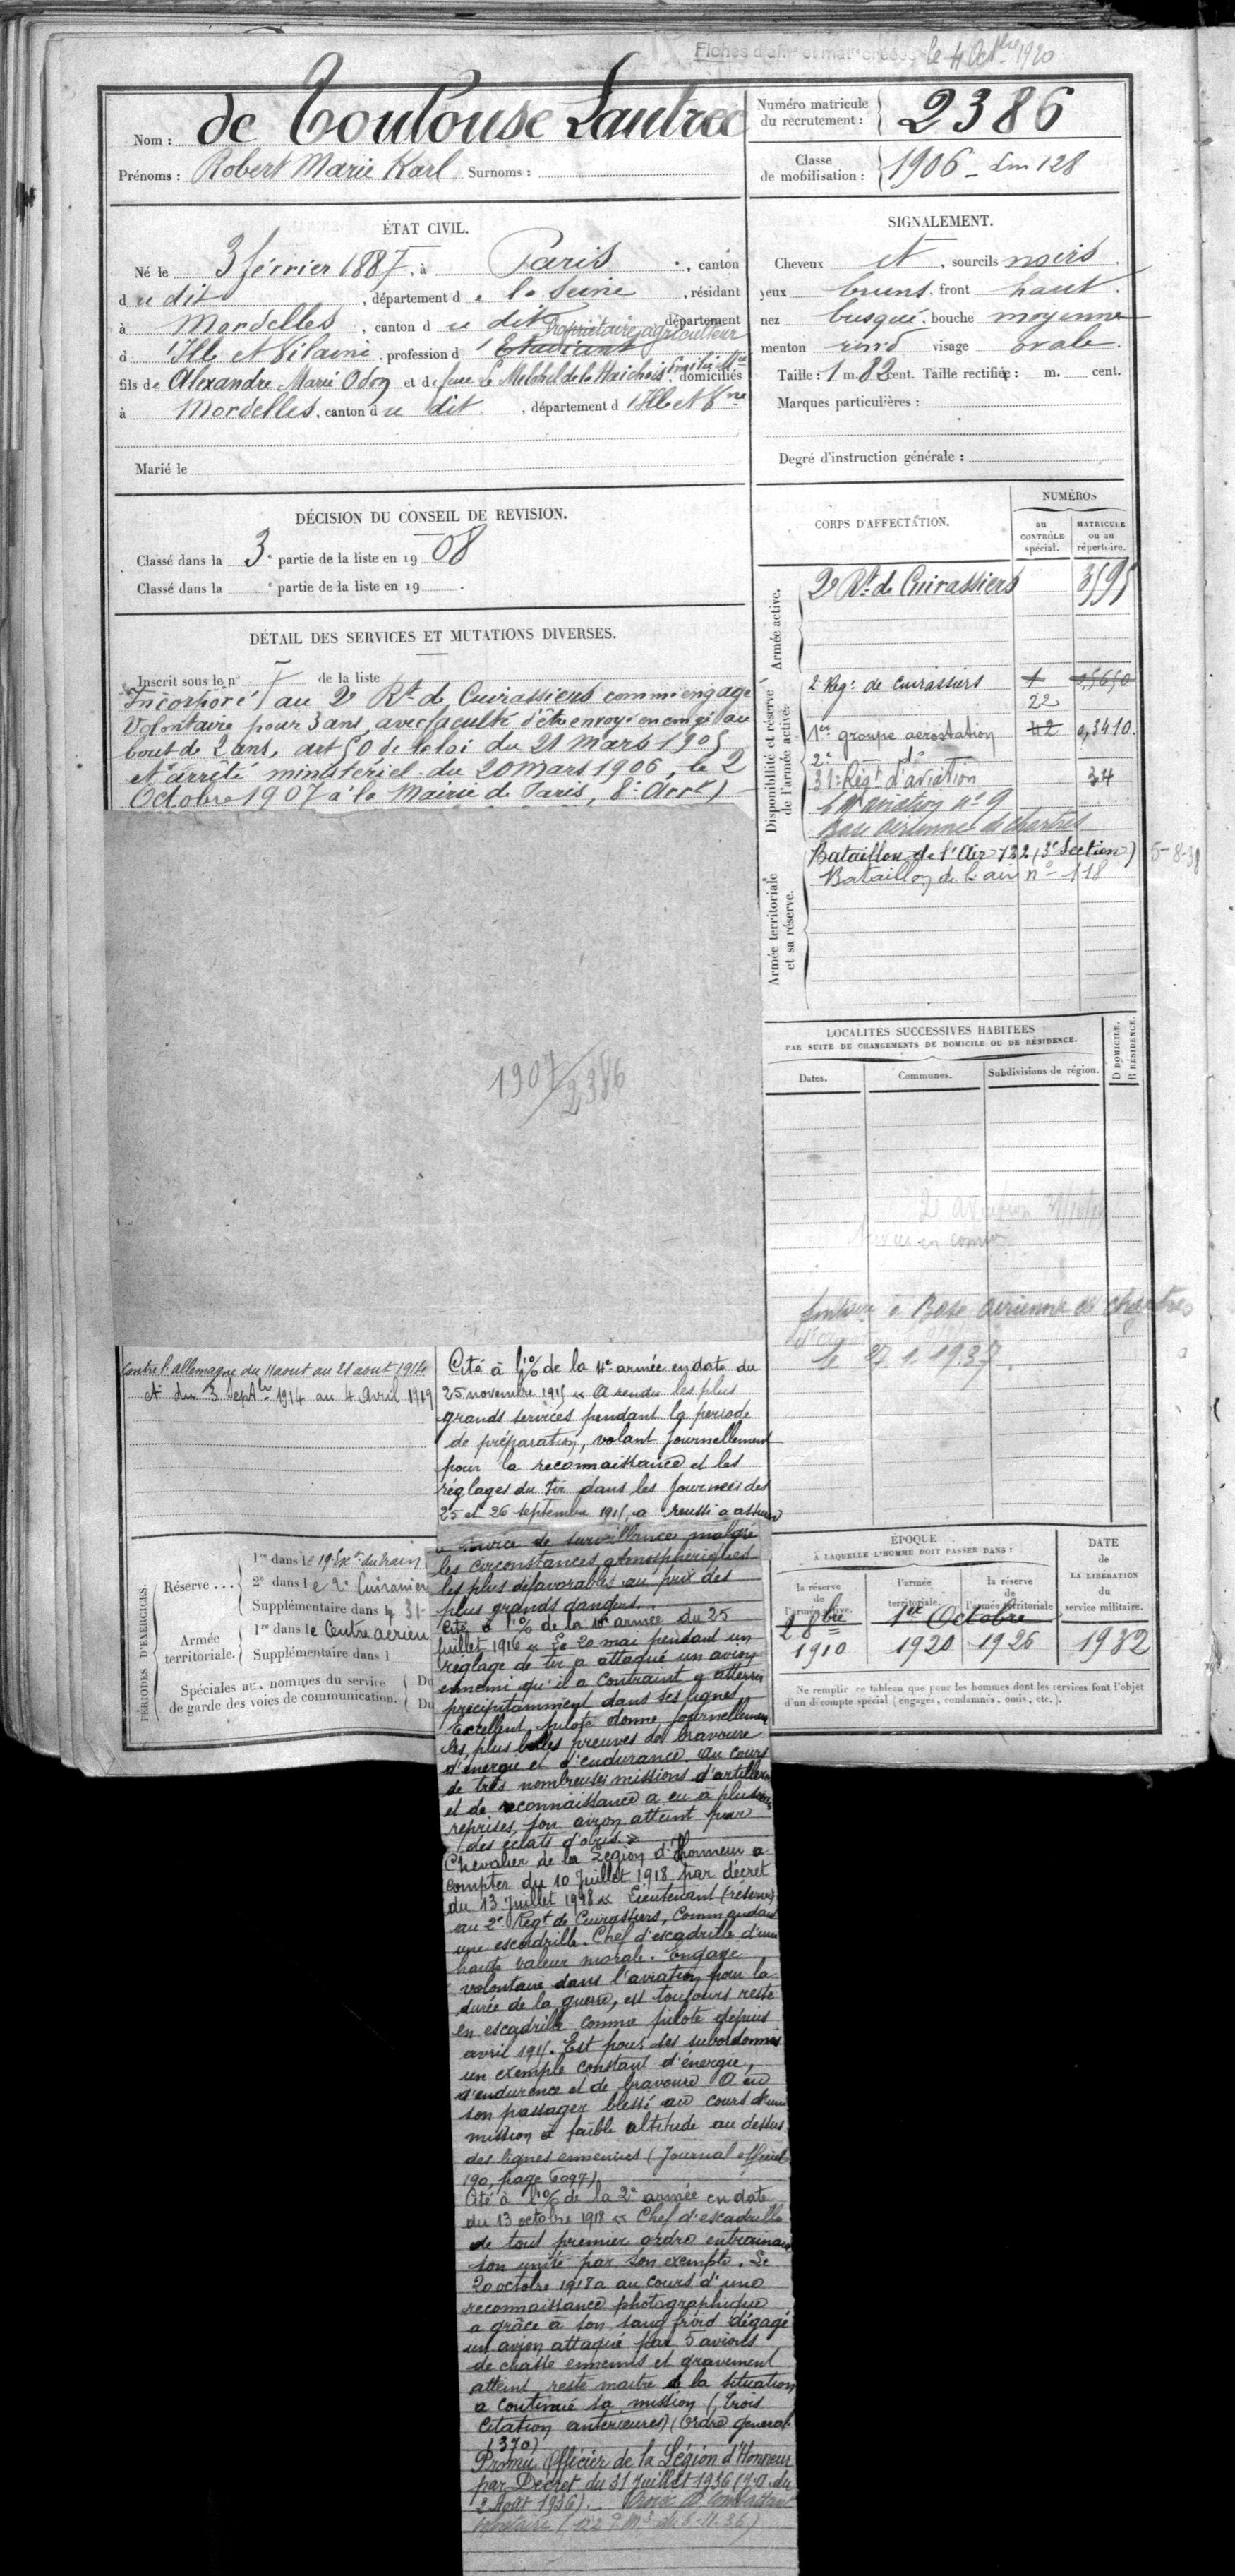 Fiches d'aff. et mat. créées le 4 Octbre 1920
Nom : de Toulouse Lautrec
Prénoms : Robert Marie Karl Surnoms :
Numéro matricule du recrutement : 2386
Classe de mobilisation : 1906 - 128
ÉTAT CIVIL.
Né le 3 février 1887, à Paris, canton
du dit, département de la Seine, résidant
à Mordelles, canton du dit département
Propriétaire agriculteur
d'Ille et Vilaine, profession d'Etudiant
fils de Alexandre Marie Odon et de feue Le domiciliés
à Mordelles, canton du dit, département d'Ille et Vne
Marié le
SIGNALEMENT.
Cheveux et, sourcils noirs.
yeux bruns, front haut.
nez busqué, bouche moyenne
menton rond visage ovale.
Taille : 1 m. 82 cent. Taille rectifiée : m. cent.
Marques particulières :
Degré d'instruction générale :
DÉCISION DU CONSEIL DE REVISION.
Classé dans la 3e partie de la liste en 1908
Classé dans la e partie de la liste en 19 .
DÉTAIL DES SERVICES ET MUTATIONS DIVERSES.
Inscrit sous le n° de la liste
Incorporé au 2e Rt de Cuirassiers comme engagé
Volontaire pour 3 ans, avec faculté d'être envoyé en congé au
bout de 2 ans, art 50 de la loi du 21 Mars 1905
et arrêté ministériel du 20 Mars 1906, le 2
Octobre 1907 à la Mairie de Paris, 8e Arrt
1907/2386
CORPS D'AFFECTATION.
NUMÉROS
au CONTRÔLE spécial.
MATRICULE ou au répertoire.
Armée active.
2e Rt de Cuirassiers 3595
Disponibilité et réserve de l'armée active.
2e Regt de cuirassiers 1 05650
22
1er groupe aérostation 42 0,3410.
2e do
31e Régt d'aviation 34
aviation n° 9
Base aérienne de Chartres
Armée territoriale et sa réserve.
Bataillon de l'Air 132 (3e Section) 5-8-38
Bataillon de l'air n° 118
LOCALITÉS SUCCESSIVES HABITÉES
PAR SUITE DE CHANGEMENTS DE DOMICILE OU DE RÉSIDENCE.
Dates. Communes. Subdivisions de région. D DOMICILE. R RÉSIDENCE.
Base aérienne de Chartres
le 27.1.1937
Contre l'allemagne du 11 aout au 21 aout 1914
et du 3 Septbre 1914 au 4 Avril 1919
Cité à l'o/ de la 4e armée en date du
25 novembre 1915 « A rendu les plus
grands services pendant la periode
de préparation, volant journellement
pour la reconnaissance et les
réglages du tir dans les journées des
25 et 26 septembre 1915, a reussi a assurer
service de surveillance malgré
les circonstances atmosphériques
les plus défavorables au prix des
plus grands dangers.
Cité à l'o/ de la armée du 25
juillet 1916 « Le 20 mai pendant un
reglage de tir a attaqué un avion
ennemi qu'il a contraint à atterrir
précipitamment dans ses lignes
Excellent pilote donne journellement
les plus belles preuves de bravoure
d'énergie et d'endurance. Au cours
de très nombreuses missions d'artillerie
et de reconnaissance a eu à plusieurs
reprises son avion atteint par
des éclats d'obus. »
Chevalier de la Légion d'Honneur a
compter du 10 Juillet 1918 par décret
du 13 Juillet 1918 « Lieutenant (réserve)
au 2e Regt de Cuirassiers, commandant
une escadrille. Chef d'escadrille d'une
haute valeur morale. Engagé
volontaire dans l'aviation pour la
durée de la guerre, est toujours resté
en escadrille comme pilote depuis
avril 1915. Est pour ses subordonnés
un exemple constant d'énergie,
d'endurence et de bravoure A eu
son passager blessé au cours d'une
mission à faible altitude au dessus
des lignes ennemies (Journal officiel
190, page 6097)
Cité à l'o/ de la 2e armée en date
du 13 octobre 1918 « Chef d'escadrille
de tout premier ordre entrainant
son unité par son exemple. Le
20 octobre 1918 a au cours d'une
reconnaissance photographique
a grâce à son sang froid dégagé
un avion attaqué par 5 avions
de chasse ennemis et gravement
atteint, resté maitre de la situation
a continué sa mission (Trois
Citation antérieures) (Ordre général
1370)
Promu Officier de la Légion d'Honneur
par Décret du 31 Juillet 1936 (J.O. du
2 Août 1936). - Croix du Combattant
Volontaire
PÉRIODES D'EXERCICES.
Réserve ...
1re dans le 19 Exon du train
2e dans le 2e Cuirassier
Supplémentaire dans le 31
Armée territoriale.
1re dans le Centre aérien
Supplémentaire dans l
Spéciales aux hommes du service de garde des voies de communication. Du Du
ÉPOQUE
À LAQUELLE L'HOMME DOIT PASSER DANS :
la réserve de l'armée active. l'armée territoriale. la réserve de l'armée territoriale
DATE de LA LIBÉRATION du service militaire.
2 8bre 1er Octobre
1910 1920 1926 1932
Ne remplir ce tableau que pour les hommes dont les services font l'objet
d'un décompte spécial (engagés, condamnés, omis, etc.).